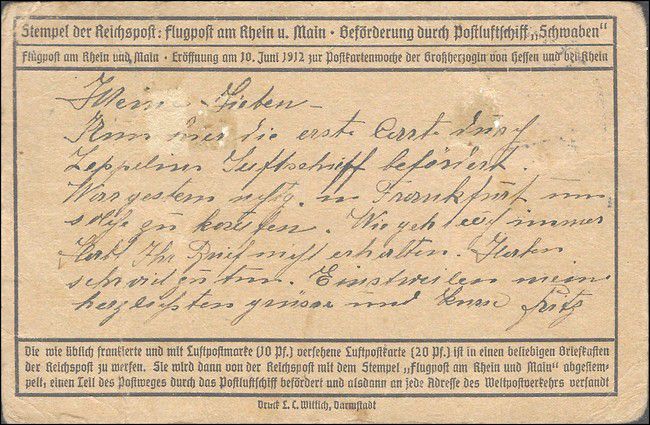 Stempel der Reichspost: Flugpost am Rhein u. Main · Beförderung durch Postluftschiff „Schwaben“
Flugpost am Rhein und Main · Eröffnung am 10. Juni 1912 zur Postkartenwoche der Großherzogin von Hessen und bei Rhein
Meine Lieben –
die erste Carte durch
Zeppelin Luftschiff befördert.
War gestern in Frankfurt um
solche zu kaufen. Wie geht es immer
Habt Ihr Brief nicht erhalten. Haben
viel zu tun. Einstweilen meine
herzlichsten grüsse und Küsse Fritz
Die wie üblich frankierte und mit Luftpostmarke (10 Pf.) versehene Luftpostkarte (20 Pf.) ist in einen beliebigen Briefkasten
der Reichspost zu werfen. Sie wird dann von der Reichspost mit dem Stempel „Flugpost am Rhein und Main“ abgestem-
pelt, einen Teil des Postweges durch das Postluftschiff befördert und alsdann an jede Adresse des Weltpostverkehrs versandt
Druck L. C. Wittich, Darmstadt